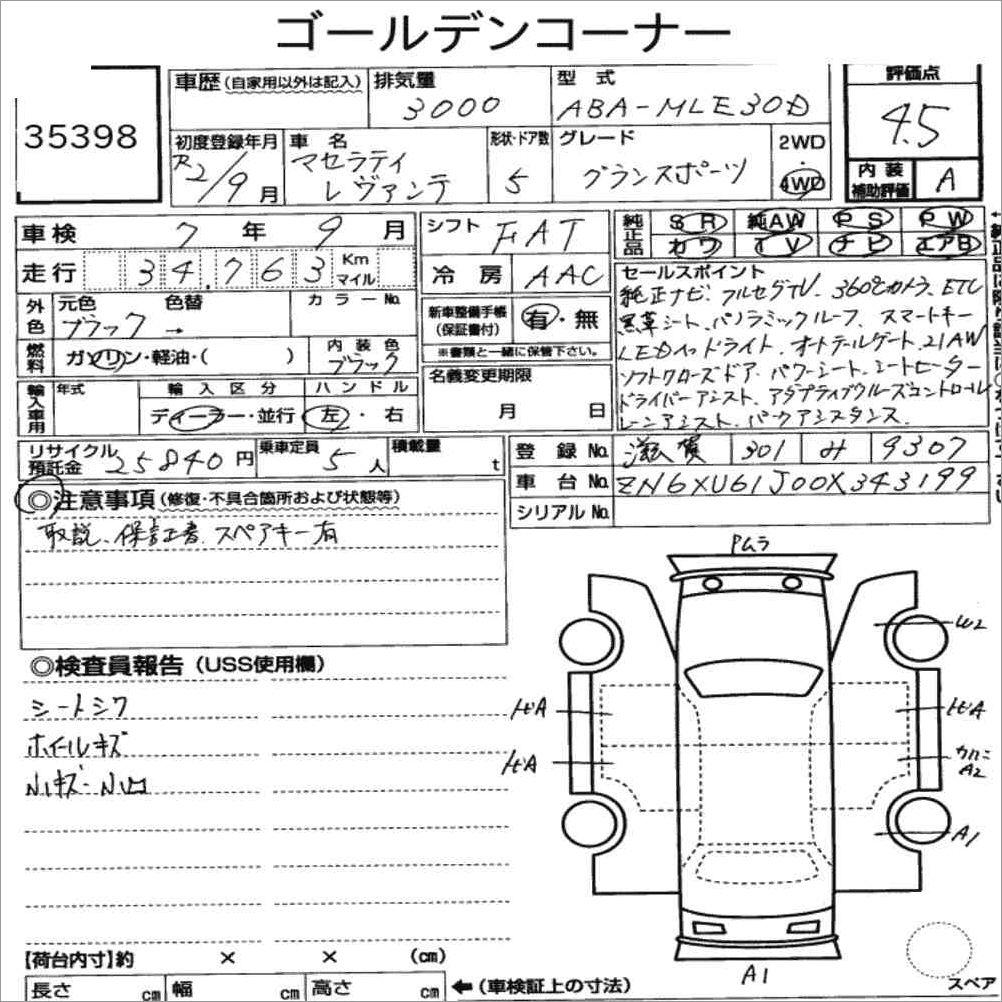 ゴールデンコーナー
35398
車歴(自家用以外は記入)
排気量
3000
型式
ABA-MLE30D
評価点
4.5
初度登録年月
R2/9月
車名
マセラティ
レヴァンテ
形状・ドア数
5
グレード
グランスポーツ
2WD
・
4WD
内装
補助評価
A
車検 7年 9月
シフト FAT
純正品
SR 純AW PS PW
カワ TV ナビ エアB
走行 34,763 Km
マイル
冷房 AAC
セールスポイント
純正ナビ、フルセグTV、360°カメラ、ETC
黒革シート、パノラミックルーフ、スマートキー
LEDヘッドライト、オートテールゲート、21AW
ソフトクローズドア、パワーシート、シートヒーター
ドライバーアシスト、アダプティブクルーズコントロール
レーンアシスト、パークアシスタンス
外色
元色 色替
ブラック →
カラーNo.
新車整備手帳
(保証書付)
有・無
※書類と一緒に保管下さい。
燃料
ガソリン・軽油・( )
内装色
ブラック
名義変更期限
月 日
輸入車用
年式
輸入区分
ディーラー・並行
ハンドル
左・右
リサイクル
預託金 25840円
乗車定員 5人
積載量 t
登録No. 滋賀 301 み 9307
車台No. ZN6XU61J00X343199
シリアルNo.
◎注意事項(修復・不具合箇所および状態等)
取説、保証書、スペアキー有
◎検査員報告(USS使用欄)
シートシワ
ホイルキズ
Pムラ
W2
A2
A1
A1
スペア
【荷台内寸】約 × × (cm)
長さ cm 幅 cm 高さ cm ←(車検証上の寸法)